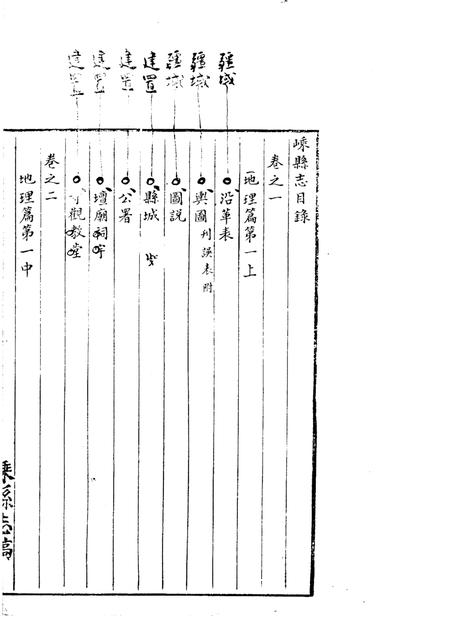 嵊縣志目錄
卷之一
地理篇第一上
疆域
沿革表
疆域
輿圖 刊誤表附
疆域
圖説
建置
縣城
建置
公署
建置
壇廟祠宇
建置
寺觀教堂
卷之二
地理篇第一中
嵊縣志稿